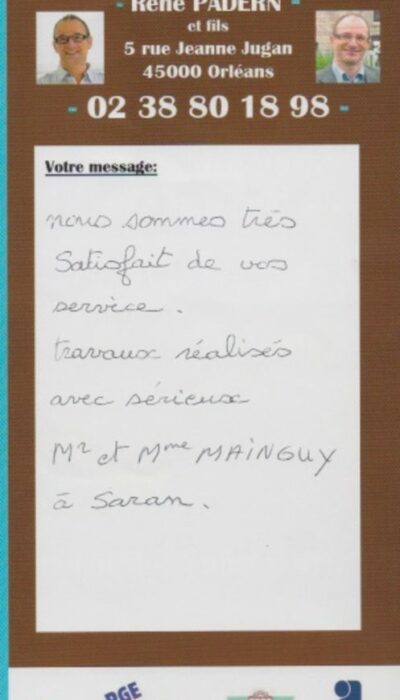 - René PADERN -
et fils
5 rue Jeanne Jugan
45000 Orléans
- 02 38 80 18 98 -
Votre message:
nous sommes très
Satisfait de vos
service.
travaux réalisés
avec sérieux
Mr et Mme MAINGUY
à Saran.
RGE